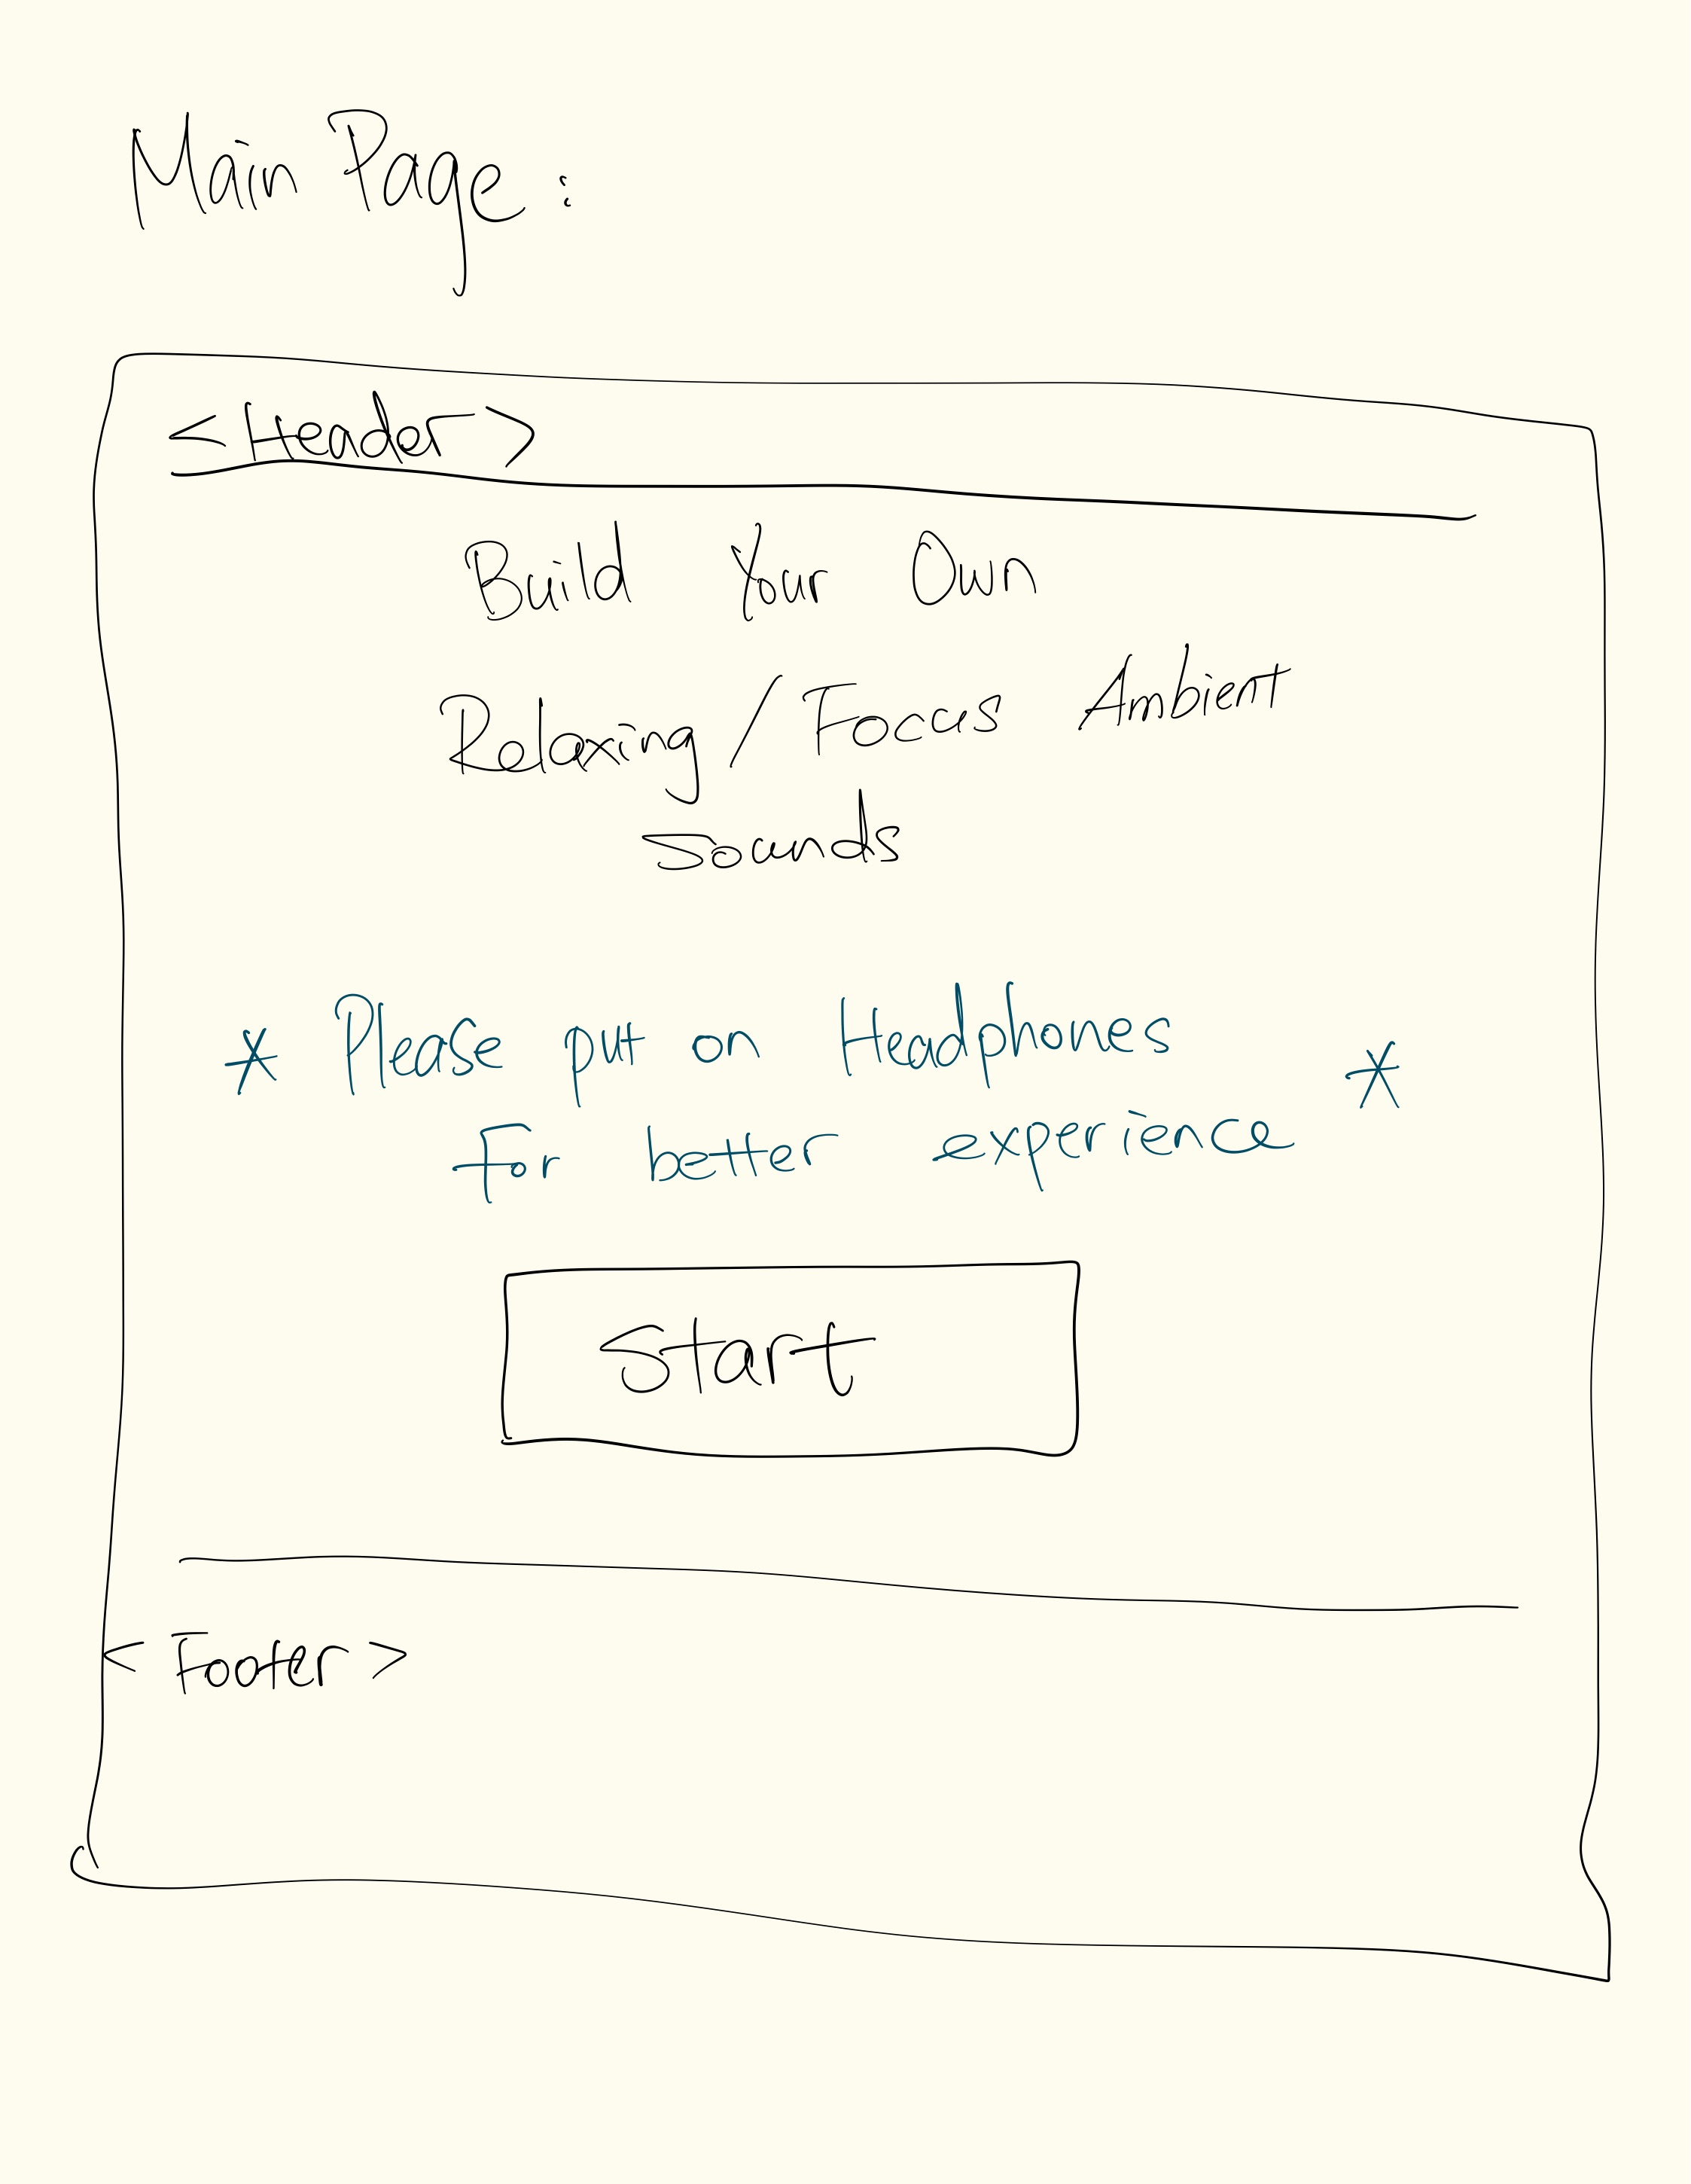 Main Page :
<Header>
Build Your Own
Relaxing / Focus Ambient
Sounds
* Please put on Headphones *
for better experience
Start
< Footer >